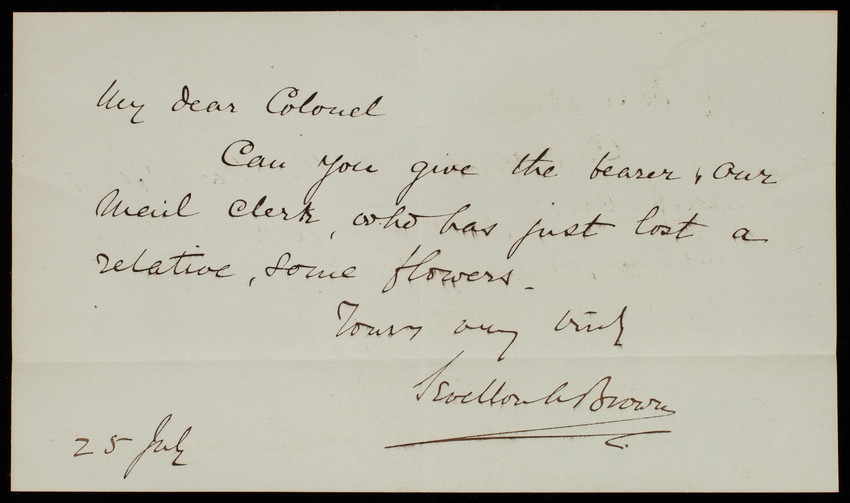 My dear Colonel
Can you give the bearer, our
Mail Clerk, who has just lost a
relative, some flowers.
Yours very truly
Sevellon A Brown
25 July